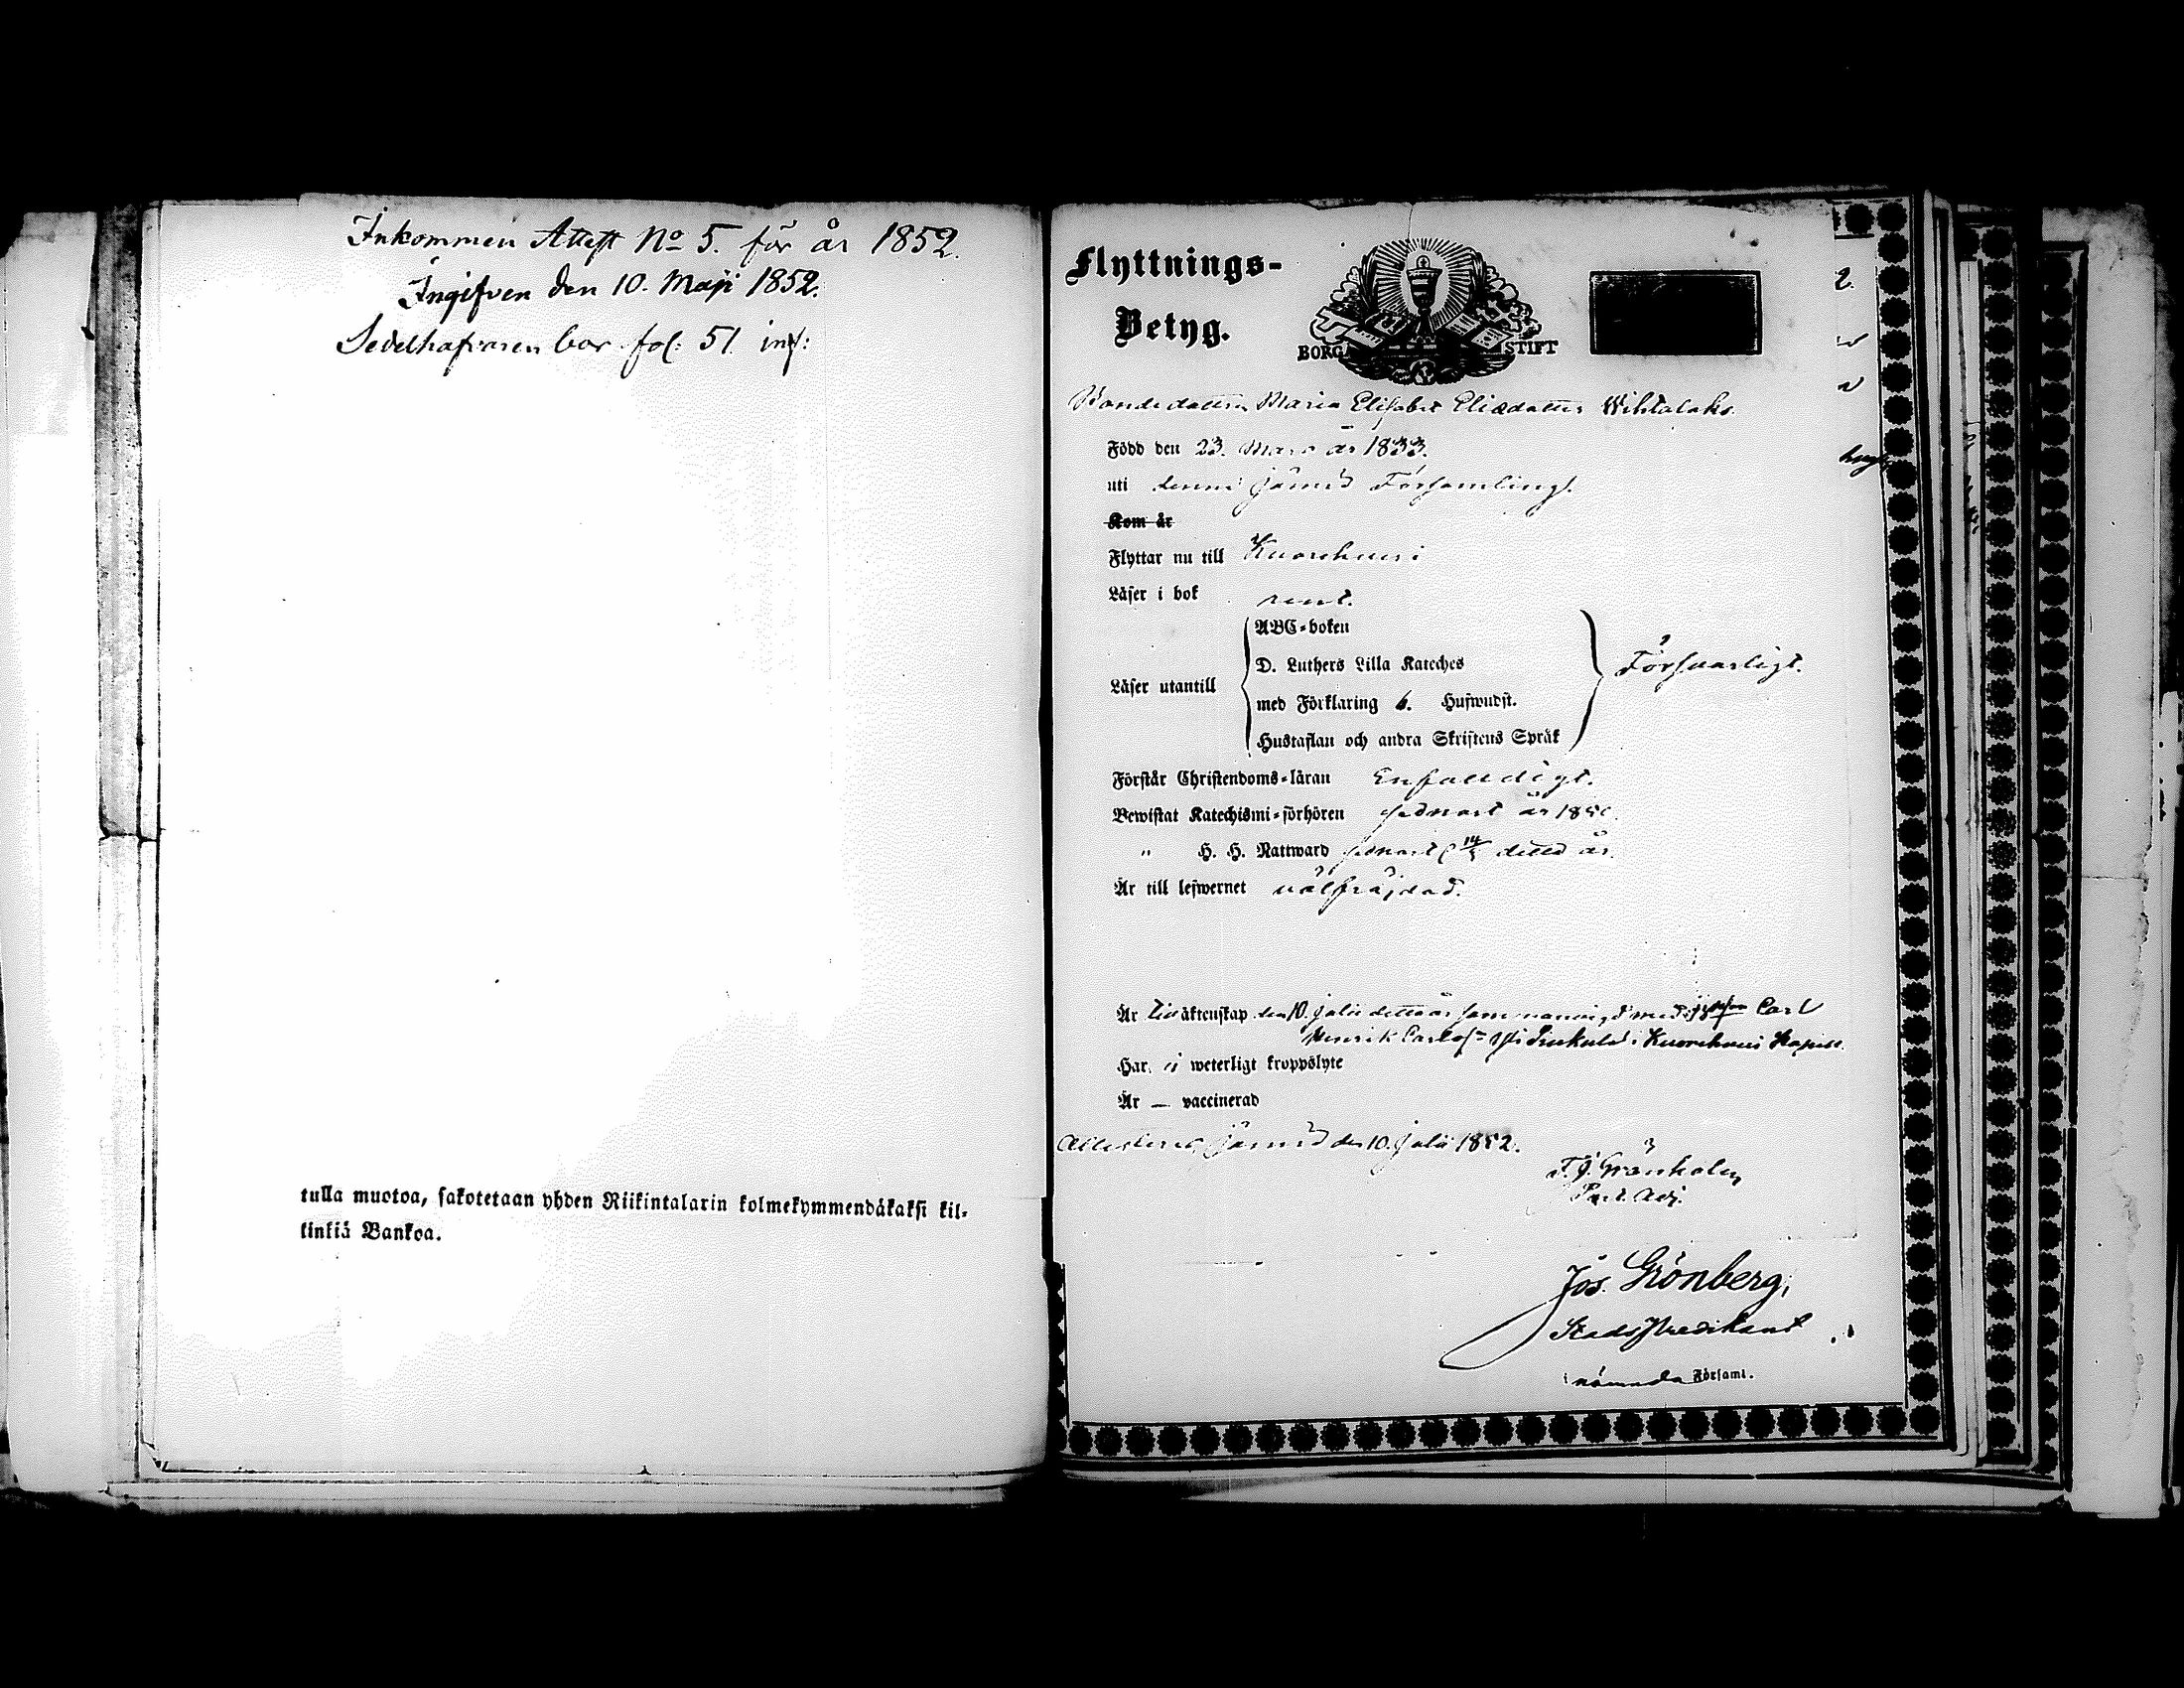 Inkommen Attest No 5. för år 1852.
Ingifven den 10. Maji 1852.
Sedelhafvaren bor fol: 51. inf:
tulla muotoa, sakotetaan yhden Riikintalarin kolmekymmendäkaksi kil=
linkiä Bankoa.
Flyttnings-
Betyg.
BORGÅ STIFT
Bondedottren Maria Elisabet Eliædotter Wihtalaks.
Född den 23. Mars år 1833.
uti denne Församling.
Kom år
Flyttar nu till Kuorehvesi
Läser i bok rent.
ABC=boken
D. Luthers Lilla Kateches
Läser utantill
med Förklaring 6. Hufwudst.
Hustaflan och andra Skriftens Språk
Försvarligt.
Förstår Christendoms=läran Enfaldigt.
Bewistat Katechismi=förhören sednast år
" H. H. Nattward sednast detta år.
Är till lefwernet välfräjdad.
Är till äktenskap den 10. Julii detta år med Carl
Henrik i Kuorehvesi Kapell.
Har ej weterligt kroppslyte
Är — vaccinerad
den 10. Julii 1852.
F. J. Grönholm
Past. Adj.
Jos. Grönberg,
Stadspredikant
i nämnda Församl.